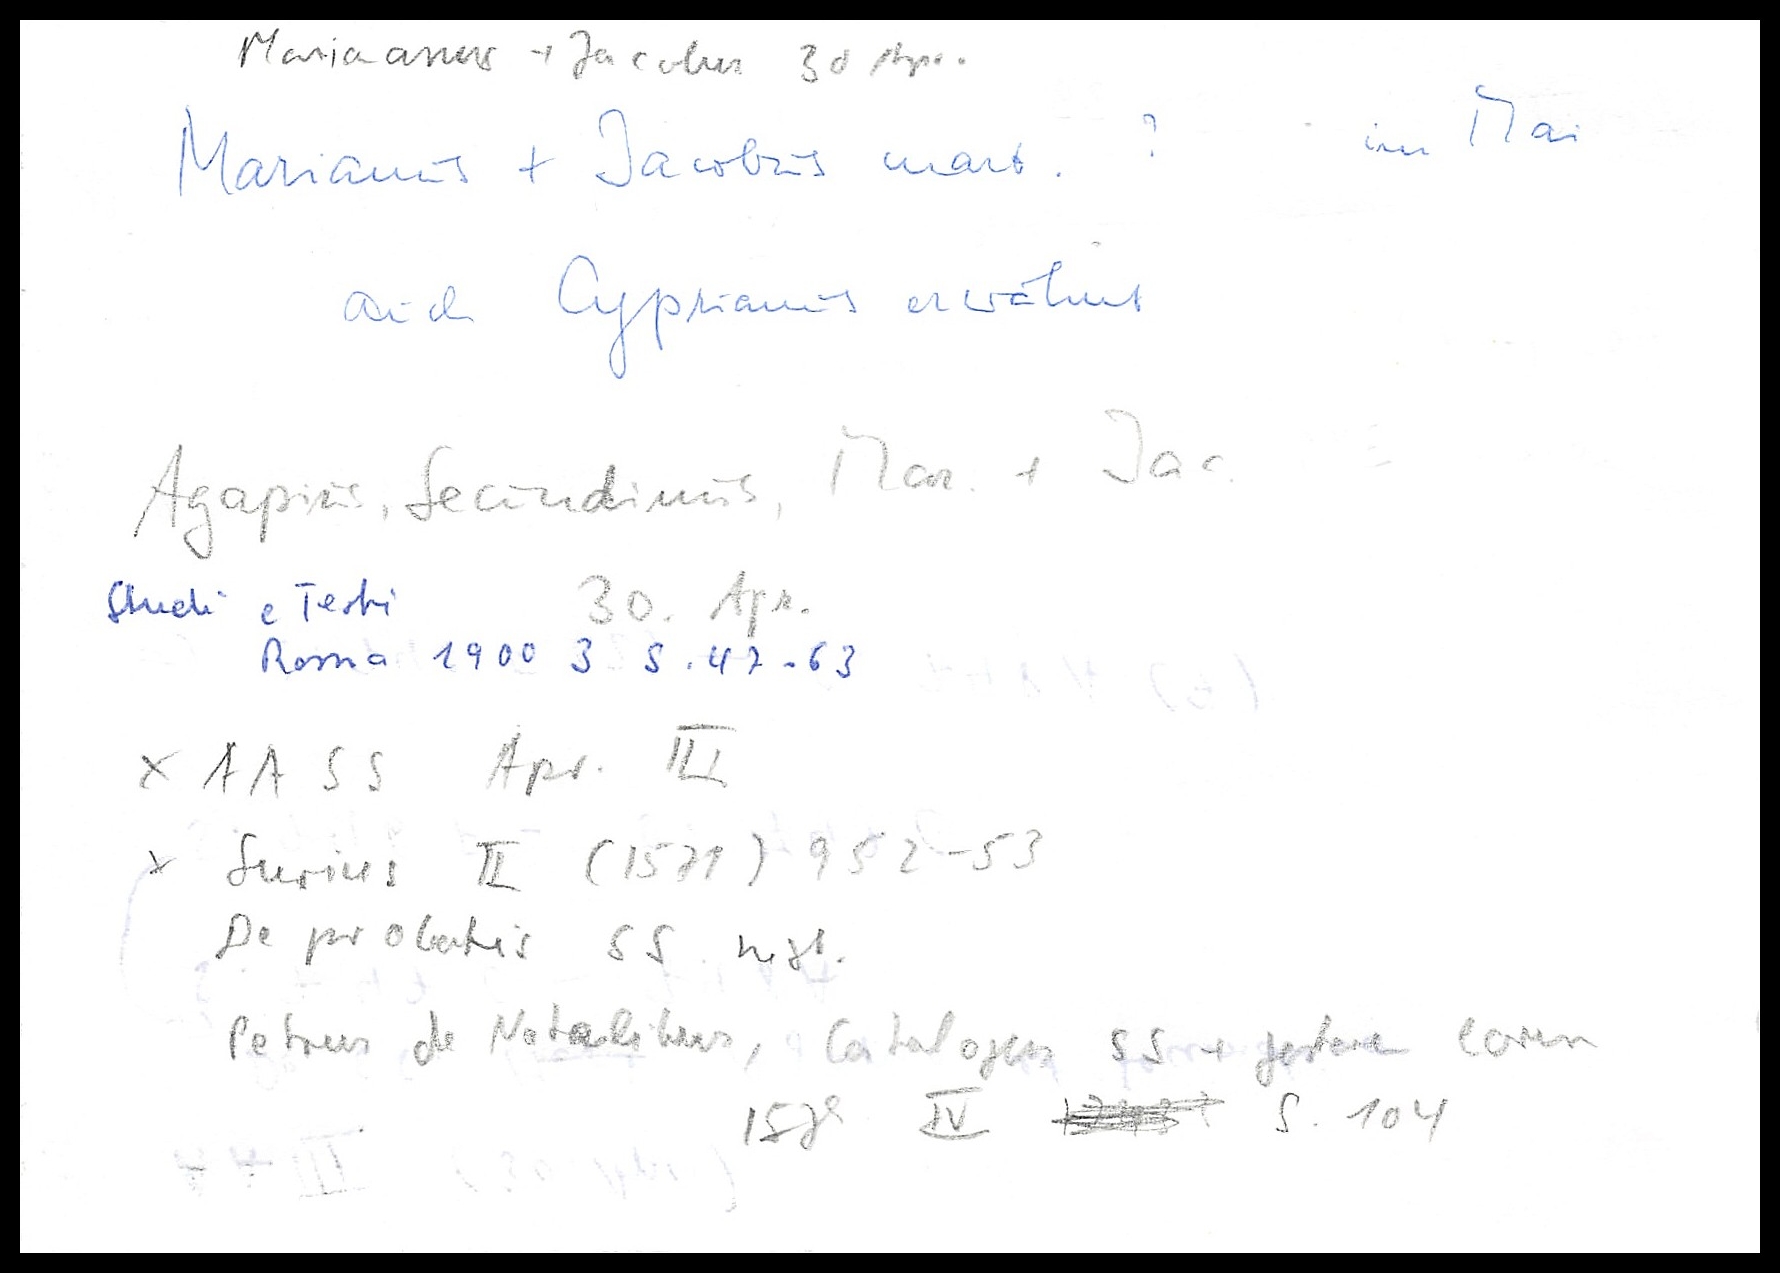 Marianus + Jacobus 30 Apr.
Marianus + Jacobus mart. ? im Mai
auch Cyprianus erwähnt
Agapius, Secundinus, Mar. + Jac.
Studi e Testi 30. Apr.
Roma 1900 3 S. 47-63
x AA SS Apr. III
x Surius II (1571) 952-53
De probatis SS
Petrus de Natalibus, Catalogus SS + gestorum eorum
IV S. 104